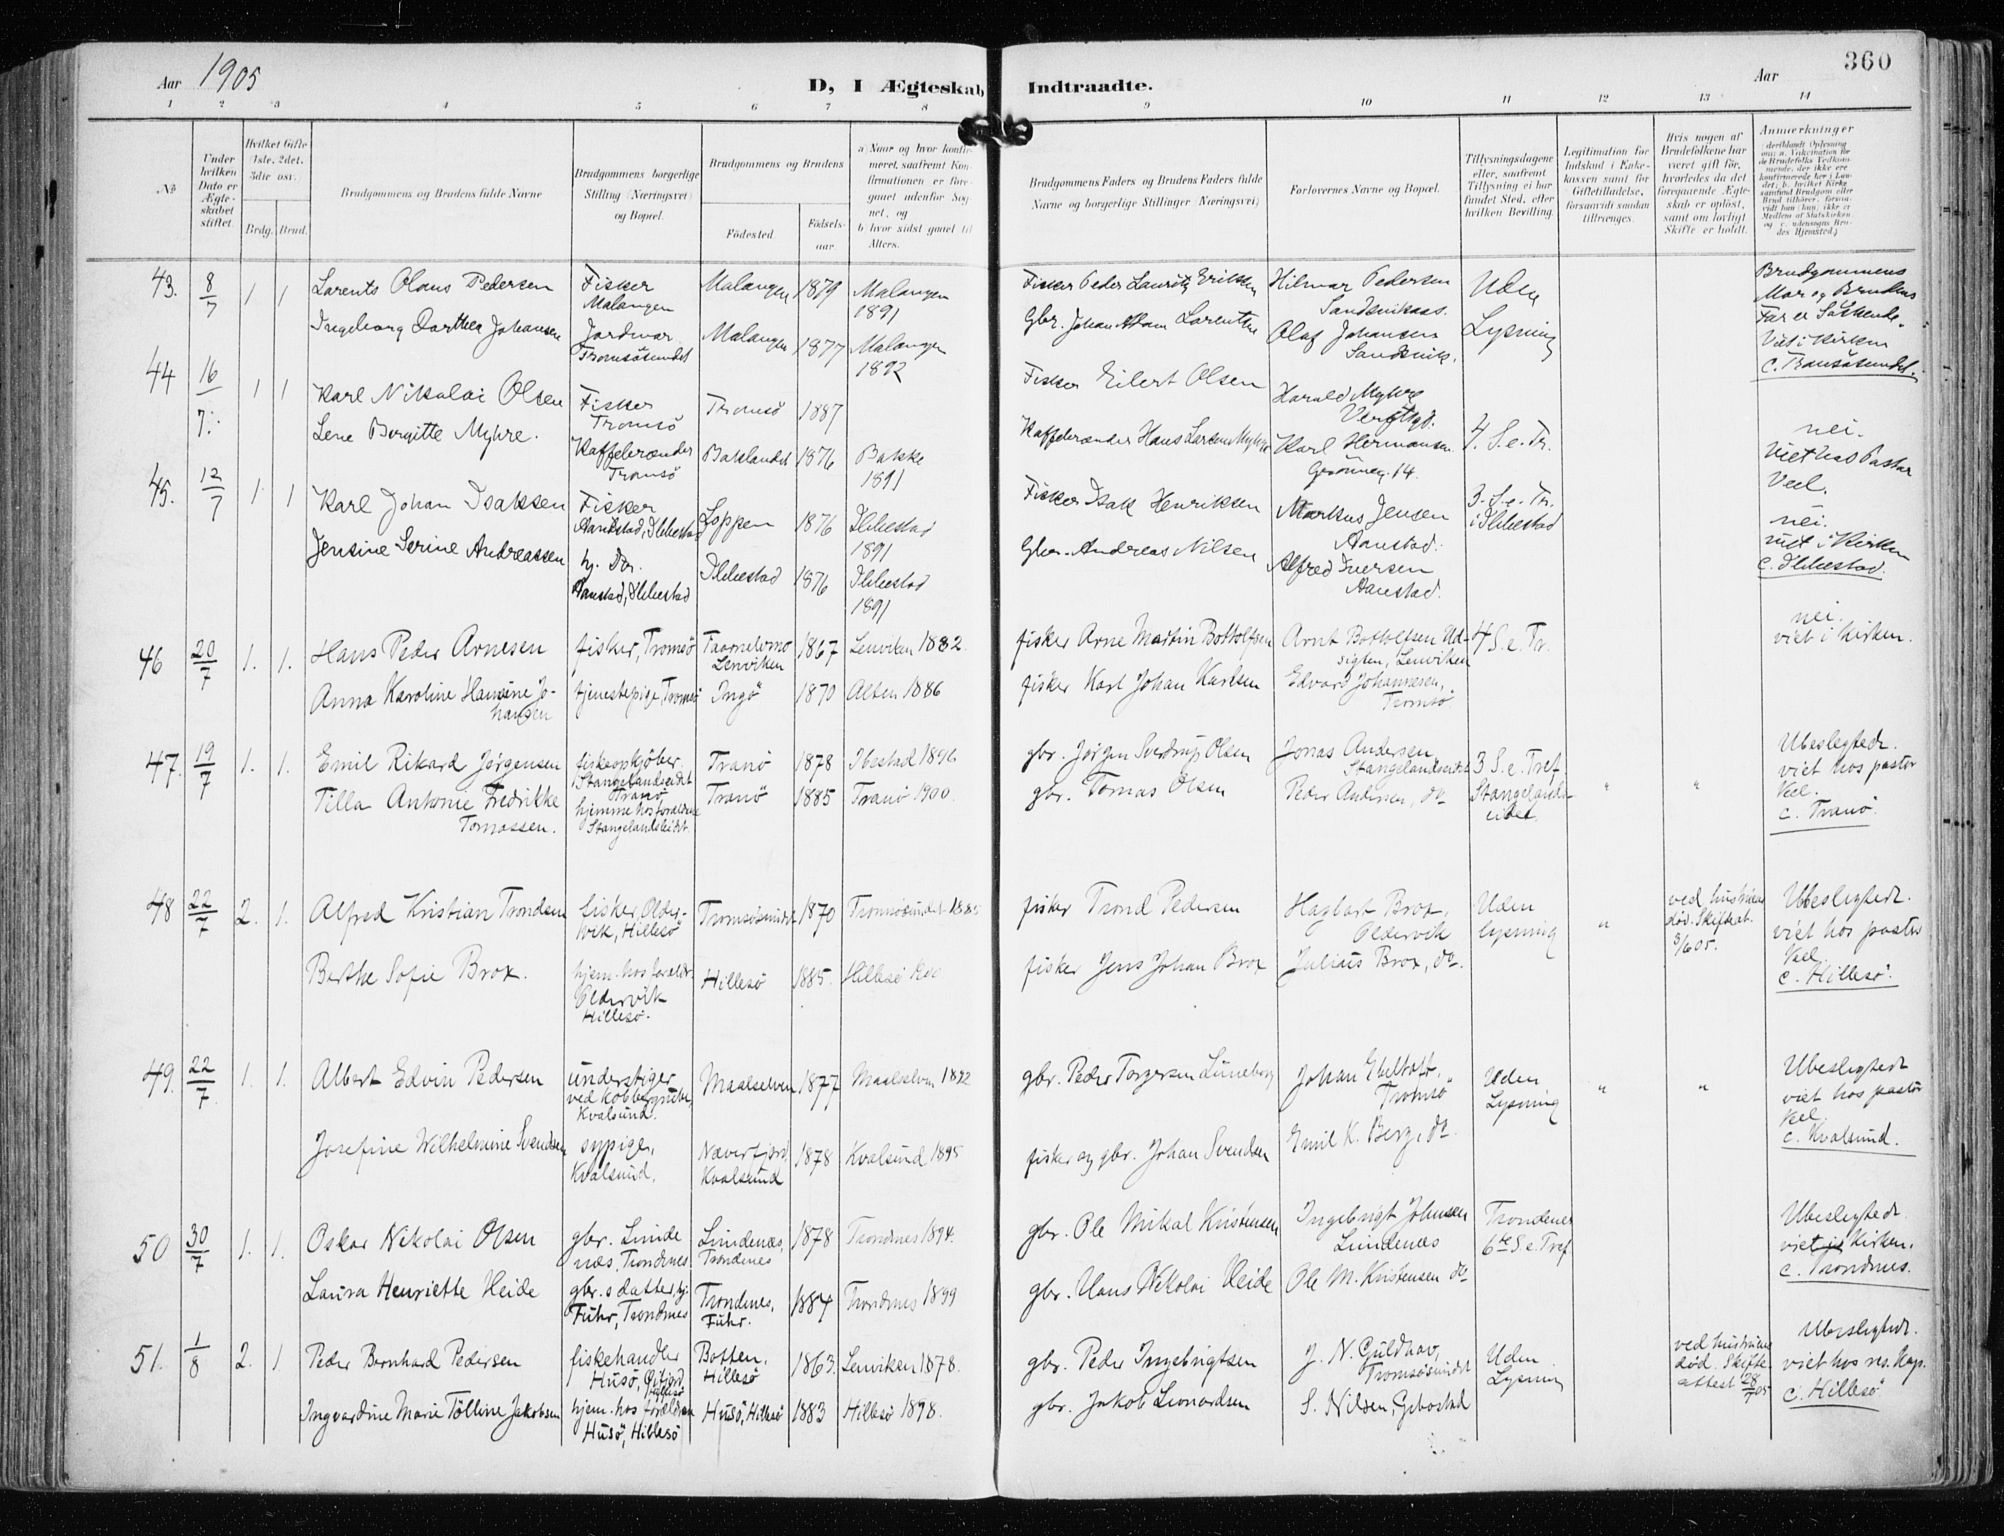 Aar 1905
D, I Ægteskab Indtraadte.
Aar
360
1 2 3 4 5 6 7 8 9 10 11 12 13 14
No
Under hvilken Dato er Ægteskabet stiftet.
Hvilket Gifte (1ste, 2det, 3die osv.)
Brdg. Brud.
Brudgommens og Brudens fulde Navne
Brudgommens borgerlige Stilling (Næringsvei) og Bopæl.
Brudgommens og Brudens
Fødested
Fødsels-aar.
a) Naar og hvor konfirmeret, saafremt Konfirmationen er foregaaet udenfor Sognet, og
b) hvor sidst gaaet til Alters.
Brudgommens Faders og Brudens Faders fulde Navne og borgerlige Stillinger (Næringsvei)
Forlovernes Navne og Bopæl.
Tillysningsdagene eller, saafremt Tillysning ei har fundet Sted, efter hvilken Bevilling.
Legitimation for Indskud i Enkekassen samt for Giftetilladelse, forsaavidt saadan tiltrænges.
Hvis nogen af Brudefolkene har været gift før, hvorledes da det foregaaende Ægteskab er opløst, samt om lovligt Skifte er holdt.
Anmærkninger
43. 8/7 1 1
Larents Olaus Pedersen
Fisker
Malangen
Malangen 1879
Malangen
1891
Fisker Peder Lauritz Eriksen
Hilmar Pedersen
Sandsviknæs.
Uden
Lysning
Brudgommens
Mor og Brudens
Far er Søskende.
Viet i Kirken
C. Tromsøsundet.
Ingeborg Darthea Johansen
Jordmor
Tromsøsundet
Malangen 1877
Malangen
1892
Gbr. Johan Adam Larentse
Olaf Johansen
Sandsvik.
44 16/7 1 1
Karl Nikolai Olsen
Fisker
Tromsø
Tromsø 1887
Fisker Eilert Olsen
Harald Myhre
4. S. e. Tr.
nei.
viet hos Pastor
Veel.
Lene Bergitte Myhre.
Kaffebrænder
Tromsø
Baklandet 1876
Bakke
1891
Kaffebrænder Hans Larsen Myhre
Karl Hermansen
Grønneg. 14.
45. 12/7 1 1
Karl Johan Isaksen
Fisker
Aanstad, Ibbestad
Loppen 1876
Ibbestad
1891
Fisker Isak Henriksen
Markus Jensen
Aanstad.
3. S. e. Tr.
i Ibbestad
nei.
viet i Kirken
C. Ibbestad.
Jensine Serine Andreassen
hj. Do.
Aanstad, Ibbestad
Ibbestad 1876
Ibbestad
1891
Gbr. Andreas Nilsen
Alfred Iversen
Aanstad.
46 20/7 1. 1.
Hans Peder Arnesen
fisker, Tromsø
Lenviken
1867 Lenviken 1882.
fisker Arne Martin Bottolfsen
Arnt Bottolfsen Ud-
sigten, Lenviken
4 S. e. Tr.
nei.
viet i Kirken.
Anna Karoline Hansine Jo-
hansen
tjenestepige, Tromsø
Ingø 1870 Alten 1886
fisker Karl Johan Karlsen
Edvard Johannesen,
Tromsø
47. 19/7 1. 1.
Emil Rikard Jørgensen
fiskeopkjøber.
Stangelandseidet
Tranø
Tranø 1878 Ibestad 1896
gbr. Jørgen Sverdrup Olsen
Jonas Andersen
Stangelandseidet
3 S. e. Tref
Stangelands-
eidet.
" "
Ubeslegtede.
viet hos pastor
Kel.
C. Tranø
Tilla Antonie Fredrikke
Tomassen.
hjemme hos forældrene
Stangelandseidet.
Tranø 1885 Tranø 1900.
gbr. Tomas Olsen
Peder Andersen, do
48 22/7 2. 1.
Alfred Kristian Trondsen
fisker, Older-
vik, Hillesø
Tromsøsundet 1870 Tromsøsundet 1885
fisker Trond Pedersen
Hagbart Brox,
Oldervik
Uden
lysning
"
ved hustruens
død. Skifteat.
3/6 05.
Ubeslegtede.
viet hos pastor
Kel.
C. Hillesø.
Berthe Sofie Brox.
hjem. hos forældr.
Oldervik
Hillesø.
Hillesø 1885. Hillesø 1900
fisker Jens Johan Brox
Julius Brox, do.
49. 22/7 1. 1.
Albert Edvin Pedersen
understiger
ved kobbergrube,
Kvalsund.
Maalselven 1877 Maalselven 1892
gbr. Peder Torgersen Lüneborg
Johan Ebeltoft,
Tromsø
Uden
Lysning
" "
Ubeslegtede
viet hos pastor
Kel.
C. Kvalsund.
Josefine Wilhelmine Svendsen
sypige,
Kvalsund.
Næverfjord,
Kvalsund
1878 Kvalsund 1895
fisker og gbr. Johan Svendsen
Emil K. Berg, do.
50 30/7 1. 1.
Oskar Nikolai Olsen
gbr. Linde
næs, Trondenes
Lundenæs,
Trondenes
1878 Trondnes 1894.
gbr. Ole Mikal Kristensen
Ingebrigt Johnsen
Lundenæs
Trondenes
6te S. e. Tref
Ubeslegtede.
viet i Kirken.
C. Trondnes.
Laura Henriette Heide
gbr.s datter, hj.
Fuhr, Trondenes
Trondenes,
Fuhr.
1884 Trondnes 1899
gbr. Hans Nikolai Heide
Ole M. Kristensen do
51. 1/8 2. 1.
Peder Bernhard Pedersen
fiskehandler
Husø, Øifjord,
Hillesø
Botten,
Hillesø
1863. Lenviken 1878.
gbr. Peder Ingebrigtsen
J. N. Guldhav,
Tromsøsundet
Uden
Lysning
ved hustruens
død. Skifte-
attest 28/7 05
Ubeslegtede.
viet hos res. Kap.
C. Hillesø
Ingvardine Marie Tolline Jakobsen
hjem. hos forældrene
Husø, Hillesø
Husø, Hillesø 1883 Hillesø 1898.
gbr. Jakob Leonardsen
S. Nilsen, Gibostad